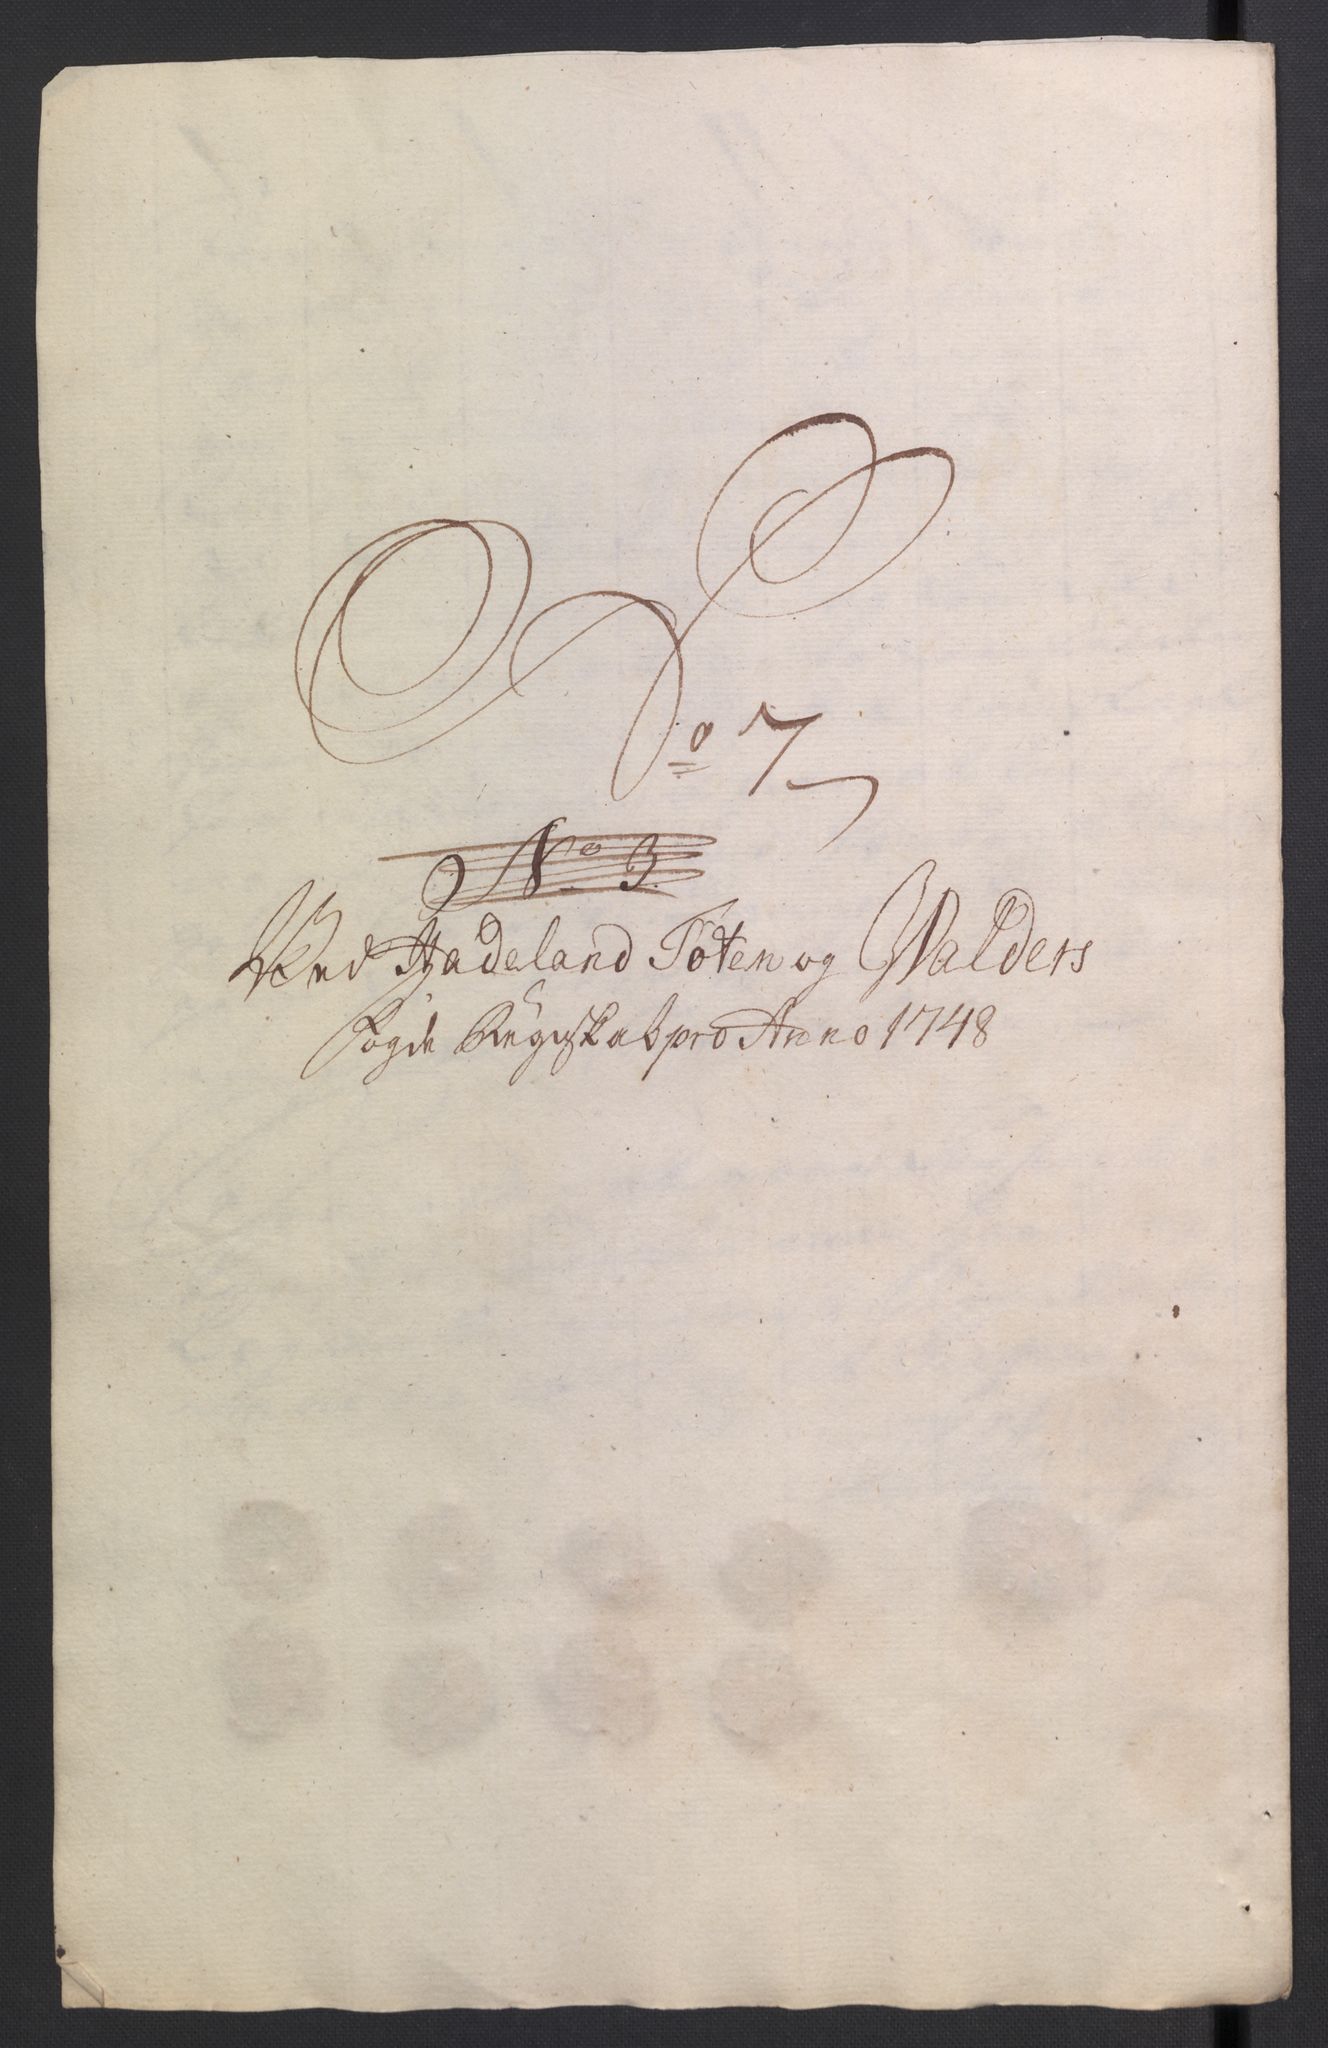 No 7
No 3.
Ved Hadeland Toten og Walders
Fogde Regnskab pro Anno 1748